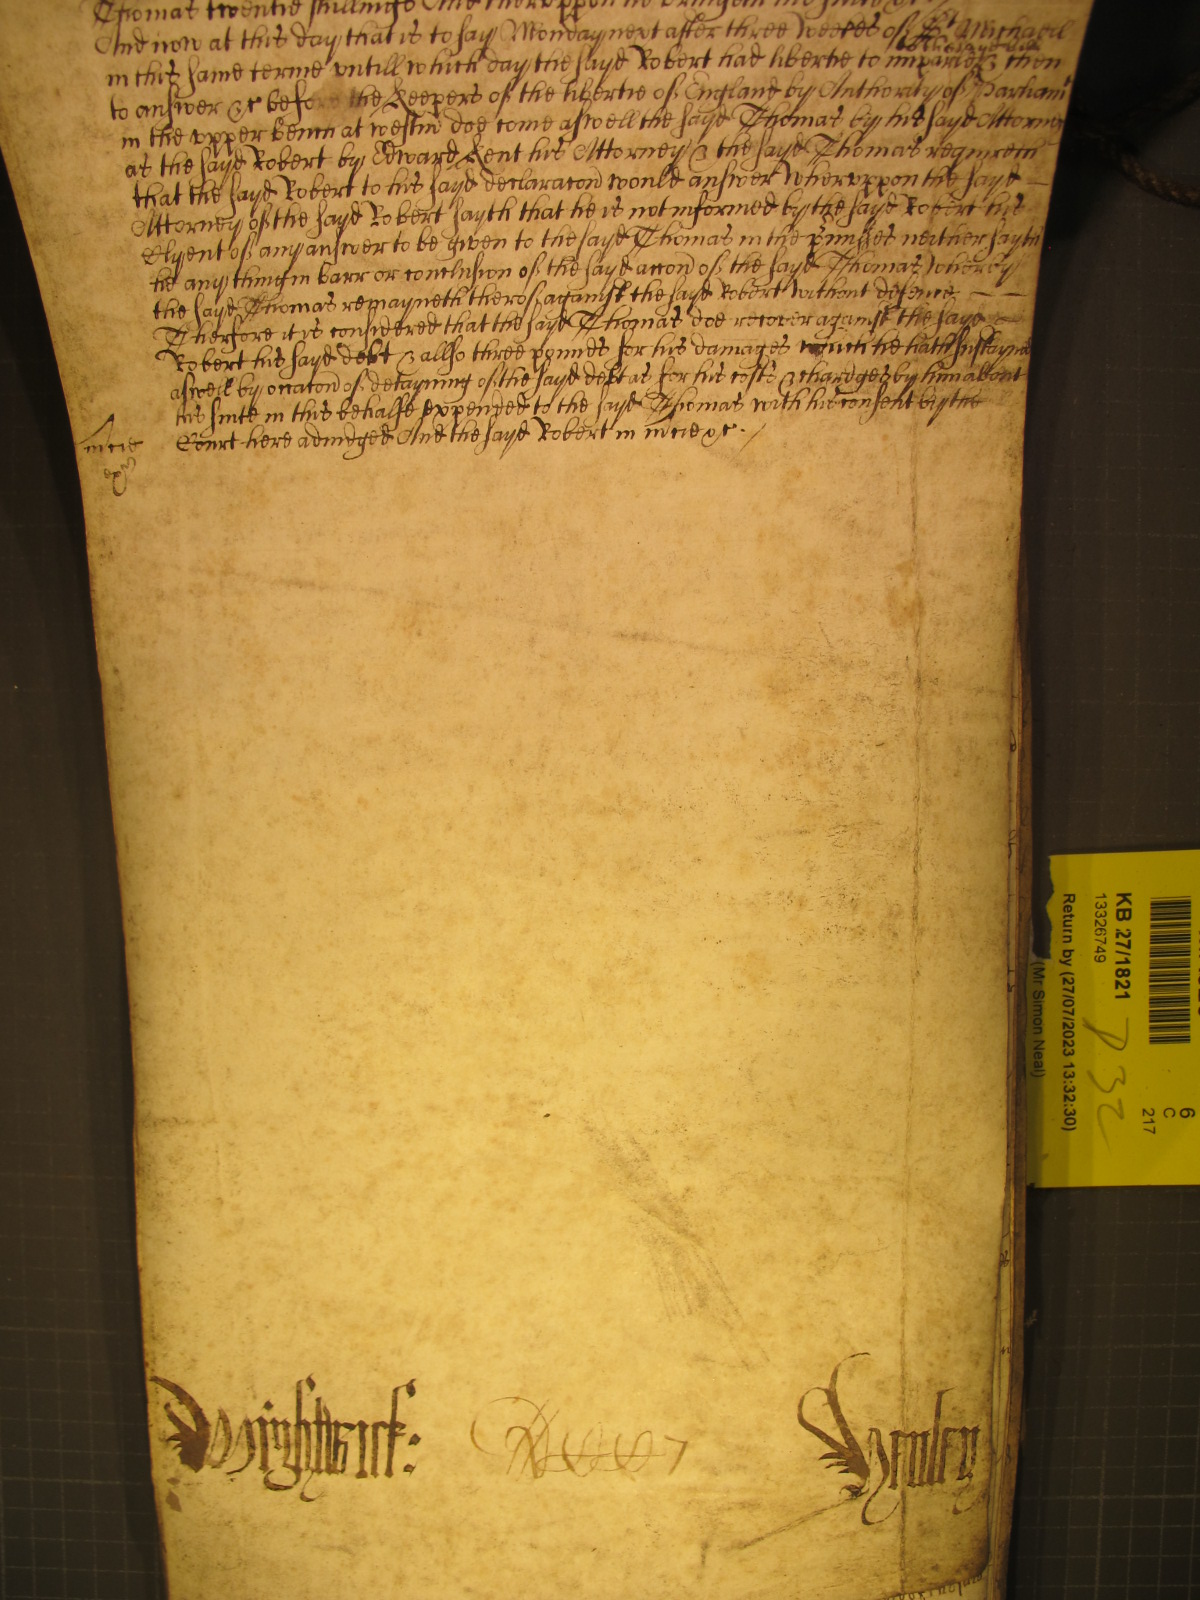 Thomas twentie shillings And therevppon he bringeth his suite &c
And now at this day that is to say Monday next after three weekes of St Michaell
in this same terme vntill which day the sayd Robert had libertie to imparle & then
to answer &c before the Keepers of the libertie of England by Authority of Parliamt
in the vpper bench at westm doe come aswell the sayd Thomas by his sayd Attorney
as the sayd Robert by Edward Kent his Attorney & the sayd Thomas requireth
that the sayd Robert to his sayd declaracon would answer Wherevppon the sayd
Attorney of the sayd Robert sayth that he is not informed by the sayd Robert his
Clyent of any answer to be given to the sayd Thomas in the pmisses neither sayth
he any thing in barr or conclusion of the sayd accon of the sayd Thomas Whereby
the sayd Thomas remayneth therof against the sayd Robert without defence
Therfore it is considered that the sayd Thomas doe recover against the sayd
Robert his sayd debt & allso three pounds for his damages which he hath susteyned
aswell by occacon of detayning of the sayd debt as for his costs & chardges by him about
his suite in this behalfe expended to the sayd Thomas with his consent by the
Court here adiudged And the sayd Robert in mcie &c.
mcie
Wightwick:
Henley
KB 27/1821
13326749
Return by (27/07/2023 13:32:30)
(Mr Simon Neal)
6
C
217
D 32